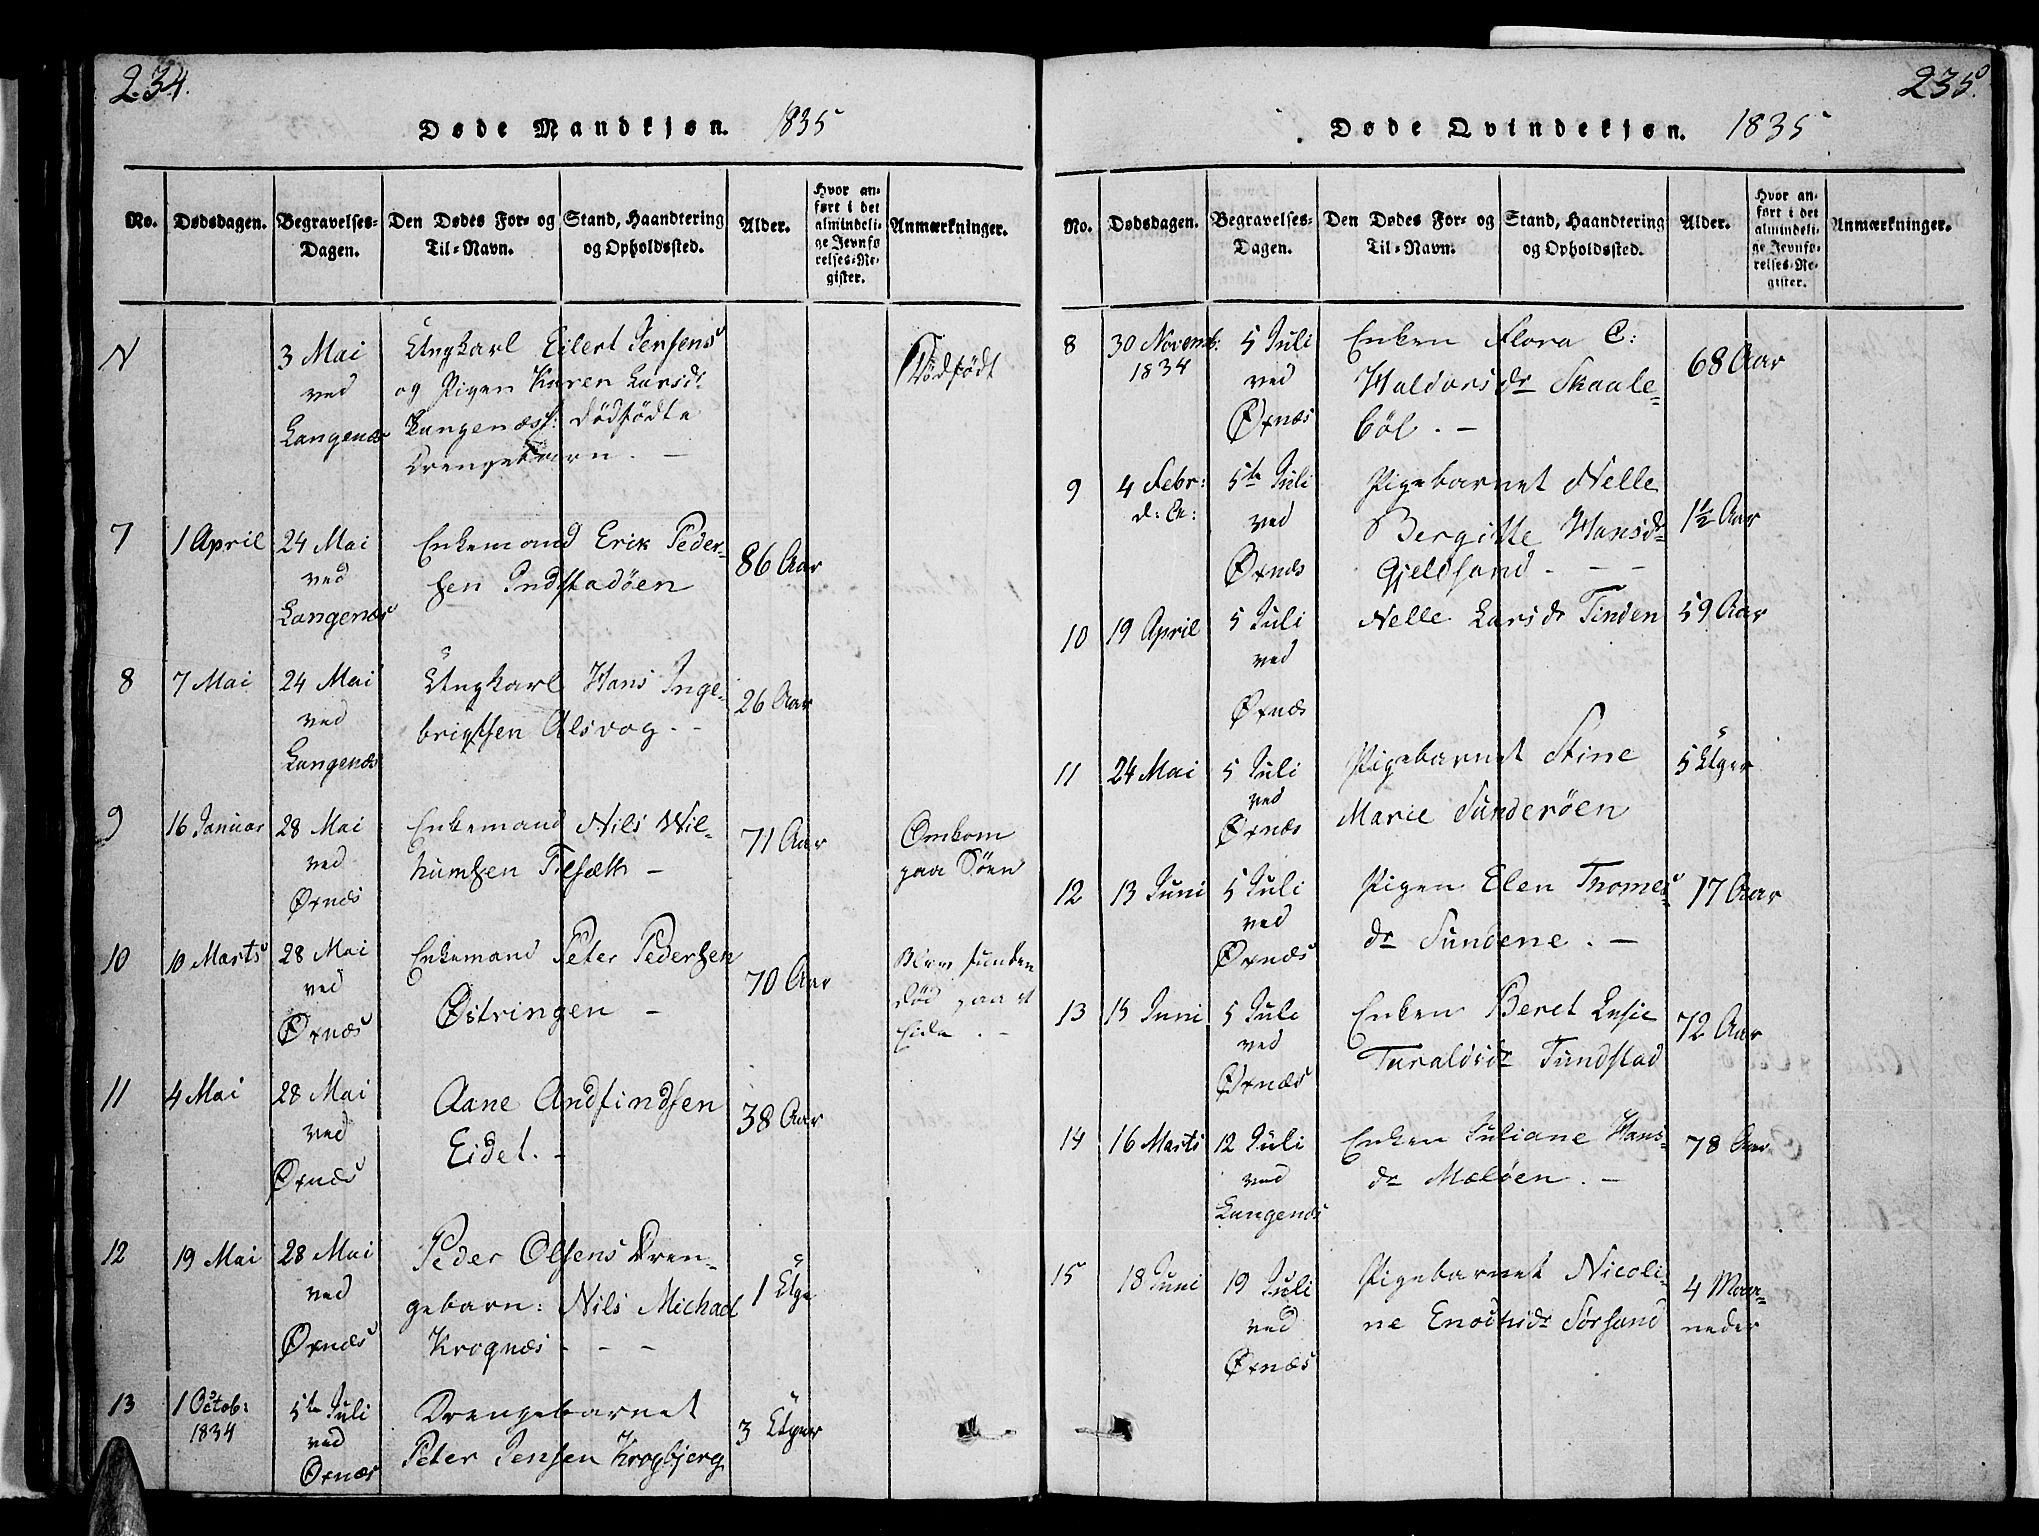 234.
Døde Mandkjøn. 1835
No.
Dødsdagen.
Begravelses-
Dagen.
Den Dødes For- og
Til-Navn.
Stand, Haandtering
og Opholdssted.
Alder.
Hvor an-
ført i det
almindeli-
ge Jevnfø
relses-Re-
gister.
Anmærkninger.
N
3 Mai
ved
Langenæs
Ungkarl Eilert Jensens
og Pigen Karen Larsdr
Langenæs: dödfödte
Drengebarn. —
Dödfödt
7
1 April
24 Mai
ved
Langenæs
Enkemand Erik Peder-
sen Indstadöen
86 Aar
8
7 Mai
24 Mai
ved
Langenæs
Ungkarl Hans Inge-
brigtsen Alsvog. -
26 Aar
9
16 Januar
28 Mai
ved
Øxnæs
Enkemand Nils Wil-
humsen —
71 Aar
Omkom
paa Söen
10
10 Marts
28 Mai
ved
Øxnæs
Enkemand Peter Pedersen
Østringen —
70 Aar
Blev funden
död paa et
Eide. -
11
4 Mai
28 Mai
ved
Øxnæs
Aane Andfindsen
Eidet. -
38 Aar
12
19 Mai
28 Mai
ved
Øxnæs
Peder Olsens Dren-
gebarn: Nils Michael
Krognæs - - -
1 Uge
13
1 Octob:
1834
5te Juli
ved
Øxnæs
Drengebarnet
Peter Jensen Krogbjerg
3 Uger
235
Døde Qvindekjøn. 1835
No.
Dødsdagen.
Begravelses-
Dagen.
Den Dødes For- og
Til-Navn.
Stand, Haandtering
og Opholdssted.
Alder.
Hvor an-
ført i det
almindeli-
ge Jevnfø-
relses-Re-
gister.
Anmærkninger.
8
30 Novemb:
1834
5 Juli
ved
Øxnæs
Enken Flora C:
Haldorsdr Skaale-
böl. -
68 Aar
9
4 Febr:
d: A:
5te Juli
ved
Øxnæs
Pigebarnet Nelle
Bergitte Hansdr
Gjeldsand - - -
1½ Aar
10
19 April
5 Juli
ved
Øxnæs
Nelle Larsdr Tinden
59 Aar
11
24 Mai
5 Juli
ved
Øxnæs
Pigebarnet Stine
Marie Sunderöen
5 Uger
12
13 Juni
5 Juli
ved
Øxnæs
Pigen Elen Thomes-
dr Sundene. —
17 Aar
13
15 Juni
5 Juli
ved
Øxnæs
Enken Beret Lusie
Taraldsdr Tundstad
72 Aar
14
16 Marts
12 Juli
ved
Langenæs
Enken Juliane Hans-
dr Mælöen. —
78 Aar
15
18 Juni
19 Juli
ved
Øxnæs
Pigebarnet Nicoli-
ne Enochsdr Sörsand
4 Maa-
neder